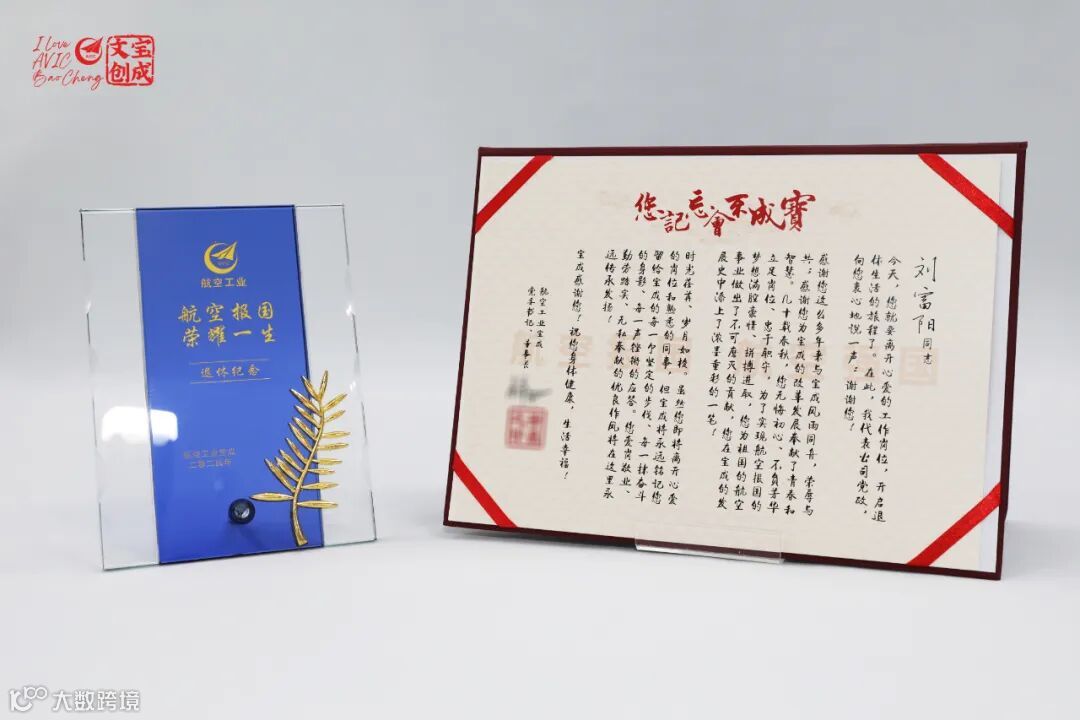 I Love
AVIC
BaoCheng
宝成
文创
航空工业
航空报国
荣耀一生
退休纪念
航空工业宝成
二〇二四年
寶成不會忘記您
刘富阳同志
今天，您就要离开心爱的工作岗位，开启退
休生活的旅程了。在此，我代表公司党政，
向您衷心地说一声：谢谢您！
感谢您这么多年来与宝成风雨同舟，荣辱与
共；感谢您为宝成的改革发展奉献了青春和
智慧。几十载春秋，您无悔初心、不负芳华
立足岗位、忠于职守，为了实现航空报国的
梦想满腔豪情、拼搏进取，您为祖国的航空
事业做出了不可磨灭的贡献，您在宝成的发
展史中添上了浓墨重彩的一笔！
时光荏苒、岁月如梭。虽然您即将离开心爱
的岗位和熟悉的同事，但宝成将永远铭记您
留给宝成的每一个坚定的步伐、每一抹奋斗
的身影、每一声铿锵的应答。您爱岗敬业、
勤劳踏实、无私奉献的优良作风将在这里永
远传承发扬！
宝成感谢您！祝您身体健康，生活幸福！
航空工业宝成
党委书记、董事长
大数跨境